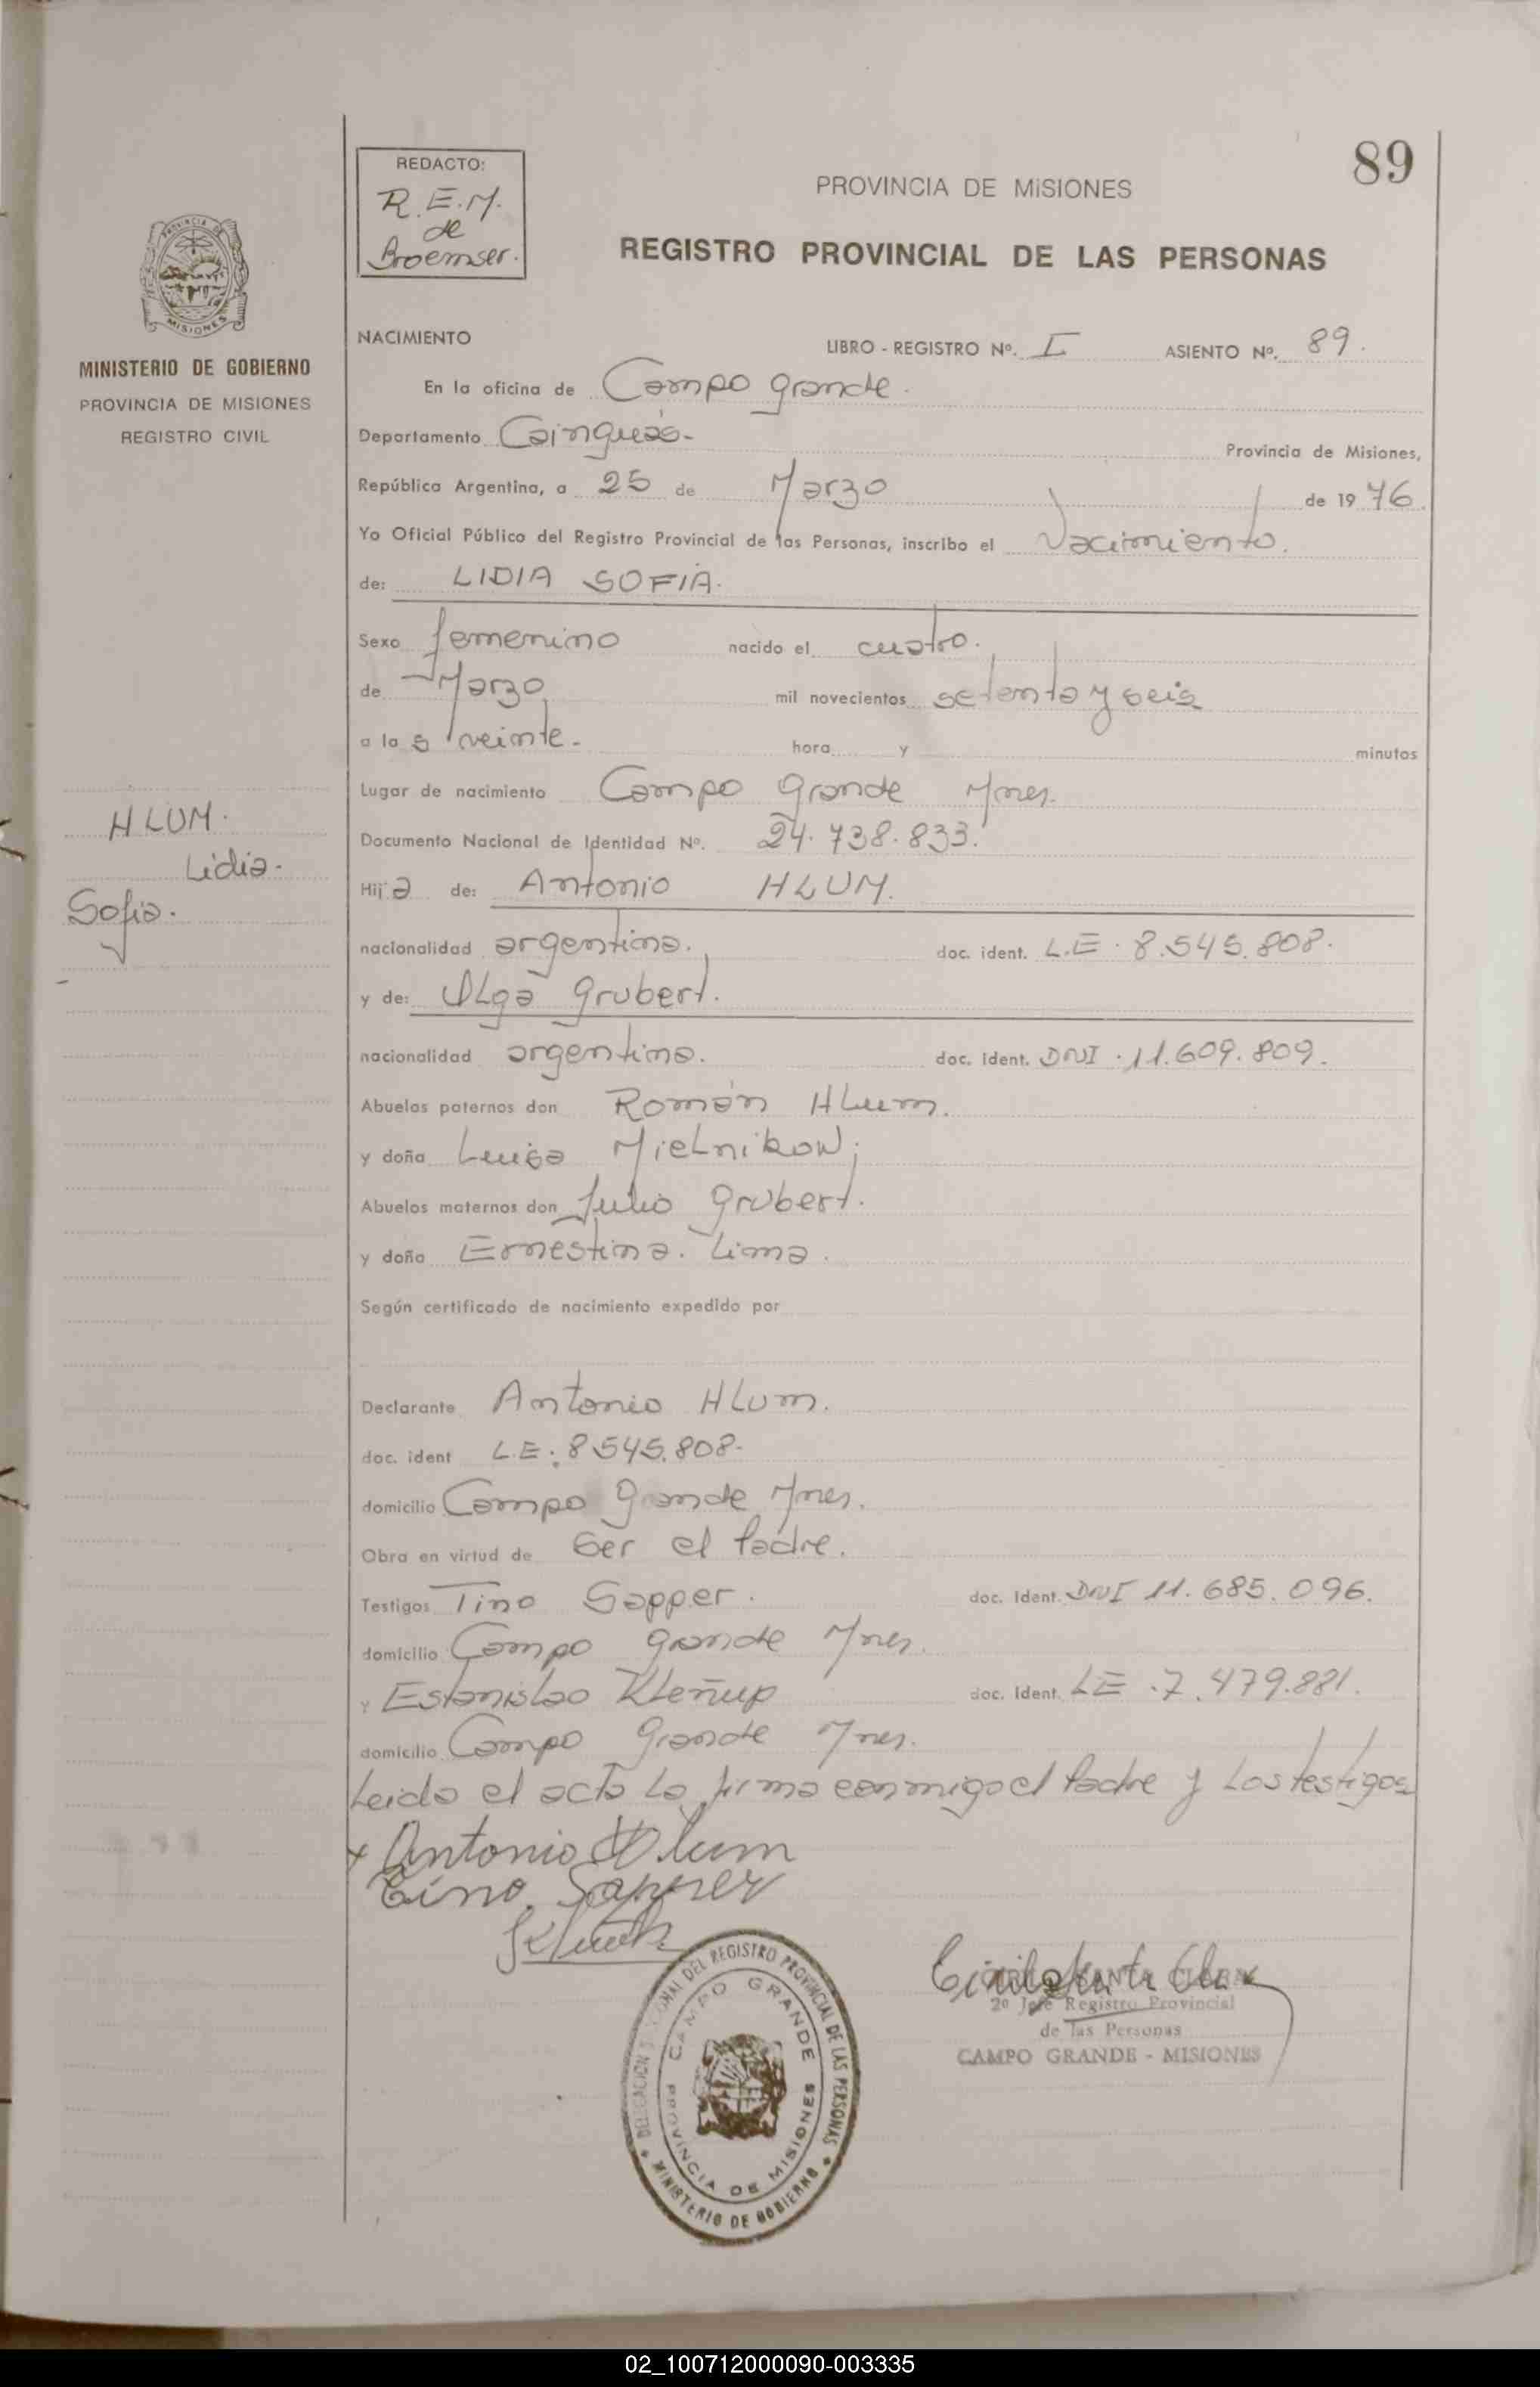 89
REDACTO:
R.E.M.
de
Broemser.
PROVINCIA DE MISIONES
REGISTRO PROVINCIAL DE LAS PERSONAS
PROVINCIA DE
MISIONES
MINISTERIO DE GOBIERNO
PROVINCIA DE MISIONES
REGISTRO CIVIL
NACIMIENTO
LIBRO - REGISTRO Nº. I ASIENTO Nº. 89.
En la oficina de Campo grande.
Departamento Cainguás- Provincia de Misiones,
República Argentina, a 25 de Marzo de 1976
Yo Oficial Público del Registro Provincial de las Personas, inscribo el Nacimiento.
de: LIDIA SOFIA.
Sexo femenino nacido el cuatro.
de Marzo mil novecientos setenta y seis
a las veinte- hora y minutos
Lugar de nacimiento Campo grande Mnes.
HLUM.
Lidia-
Sofia.
Documento Nacional de Identidad Nº. 24.738.833.
Hija de: Antonio HLUM.
nacionalidad argentina. doc. ident. L.E. 8.545.808.
y de: Olga grubert.
nacionalidad argentina. doc. ident. DNI .11.609.809.
Abuelos paternos don Román Hlum.
y doña Luisa Mielnikow;
Abuelos maternos don Julio grubert.
y doña Ernestina. Lima.
Según certificado de nacimiento expedido por
Declarante Antonio Hlum.
doc. ident L.E: 8.545.808.
domicilio Campo grande Mnes.
Obra en virtud de ser el Padre.
Testigos Tino Sapper. doc. ident. DNI 11.685.096.
domicilio Campo grande Mnes.
y Estanislao doc. ident. LE .7.479.881.
domicilio Campo grande Mnes.
Leida el acta la firma conmigo el Padre y los testigos
x Antonio Hlum
Tino. Sapper
DEL REGISTRO PROVINCIAL DE LAS PERSONAS
CAMPO GRANDE
PROVINCIA DE MISIONES
MINISTERIO DE GOBIERNO
SANTA
2º Jefe Registro Provincial
de las Personas
CAMPO GRANDE - MISIONES
02_100712000090-003335